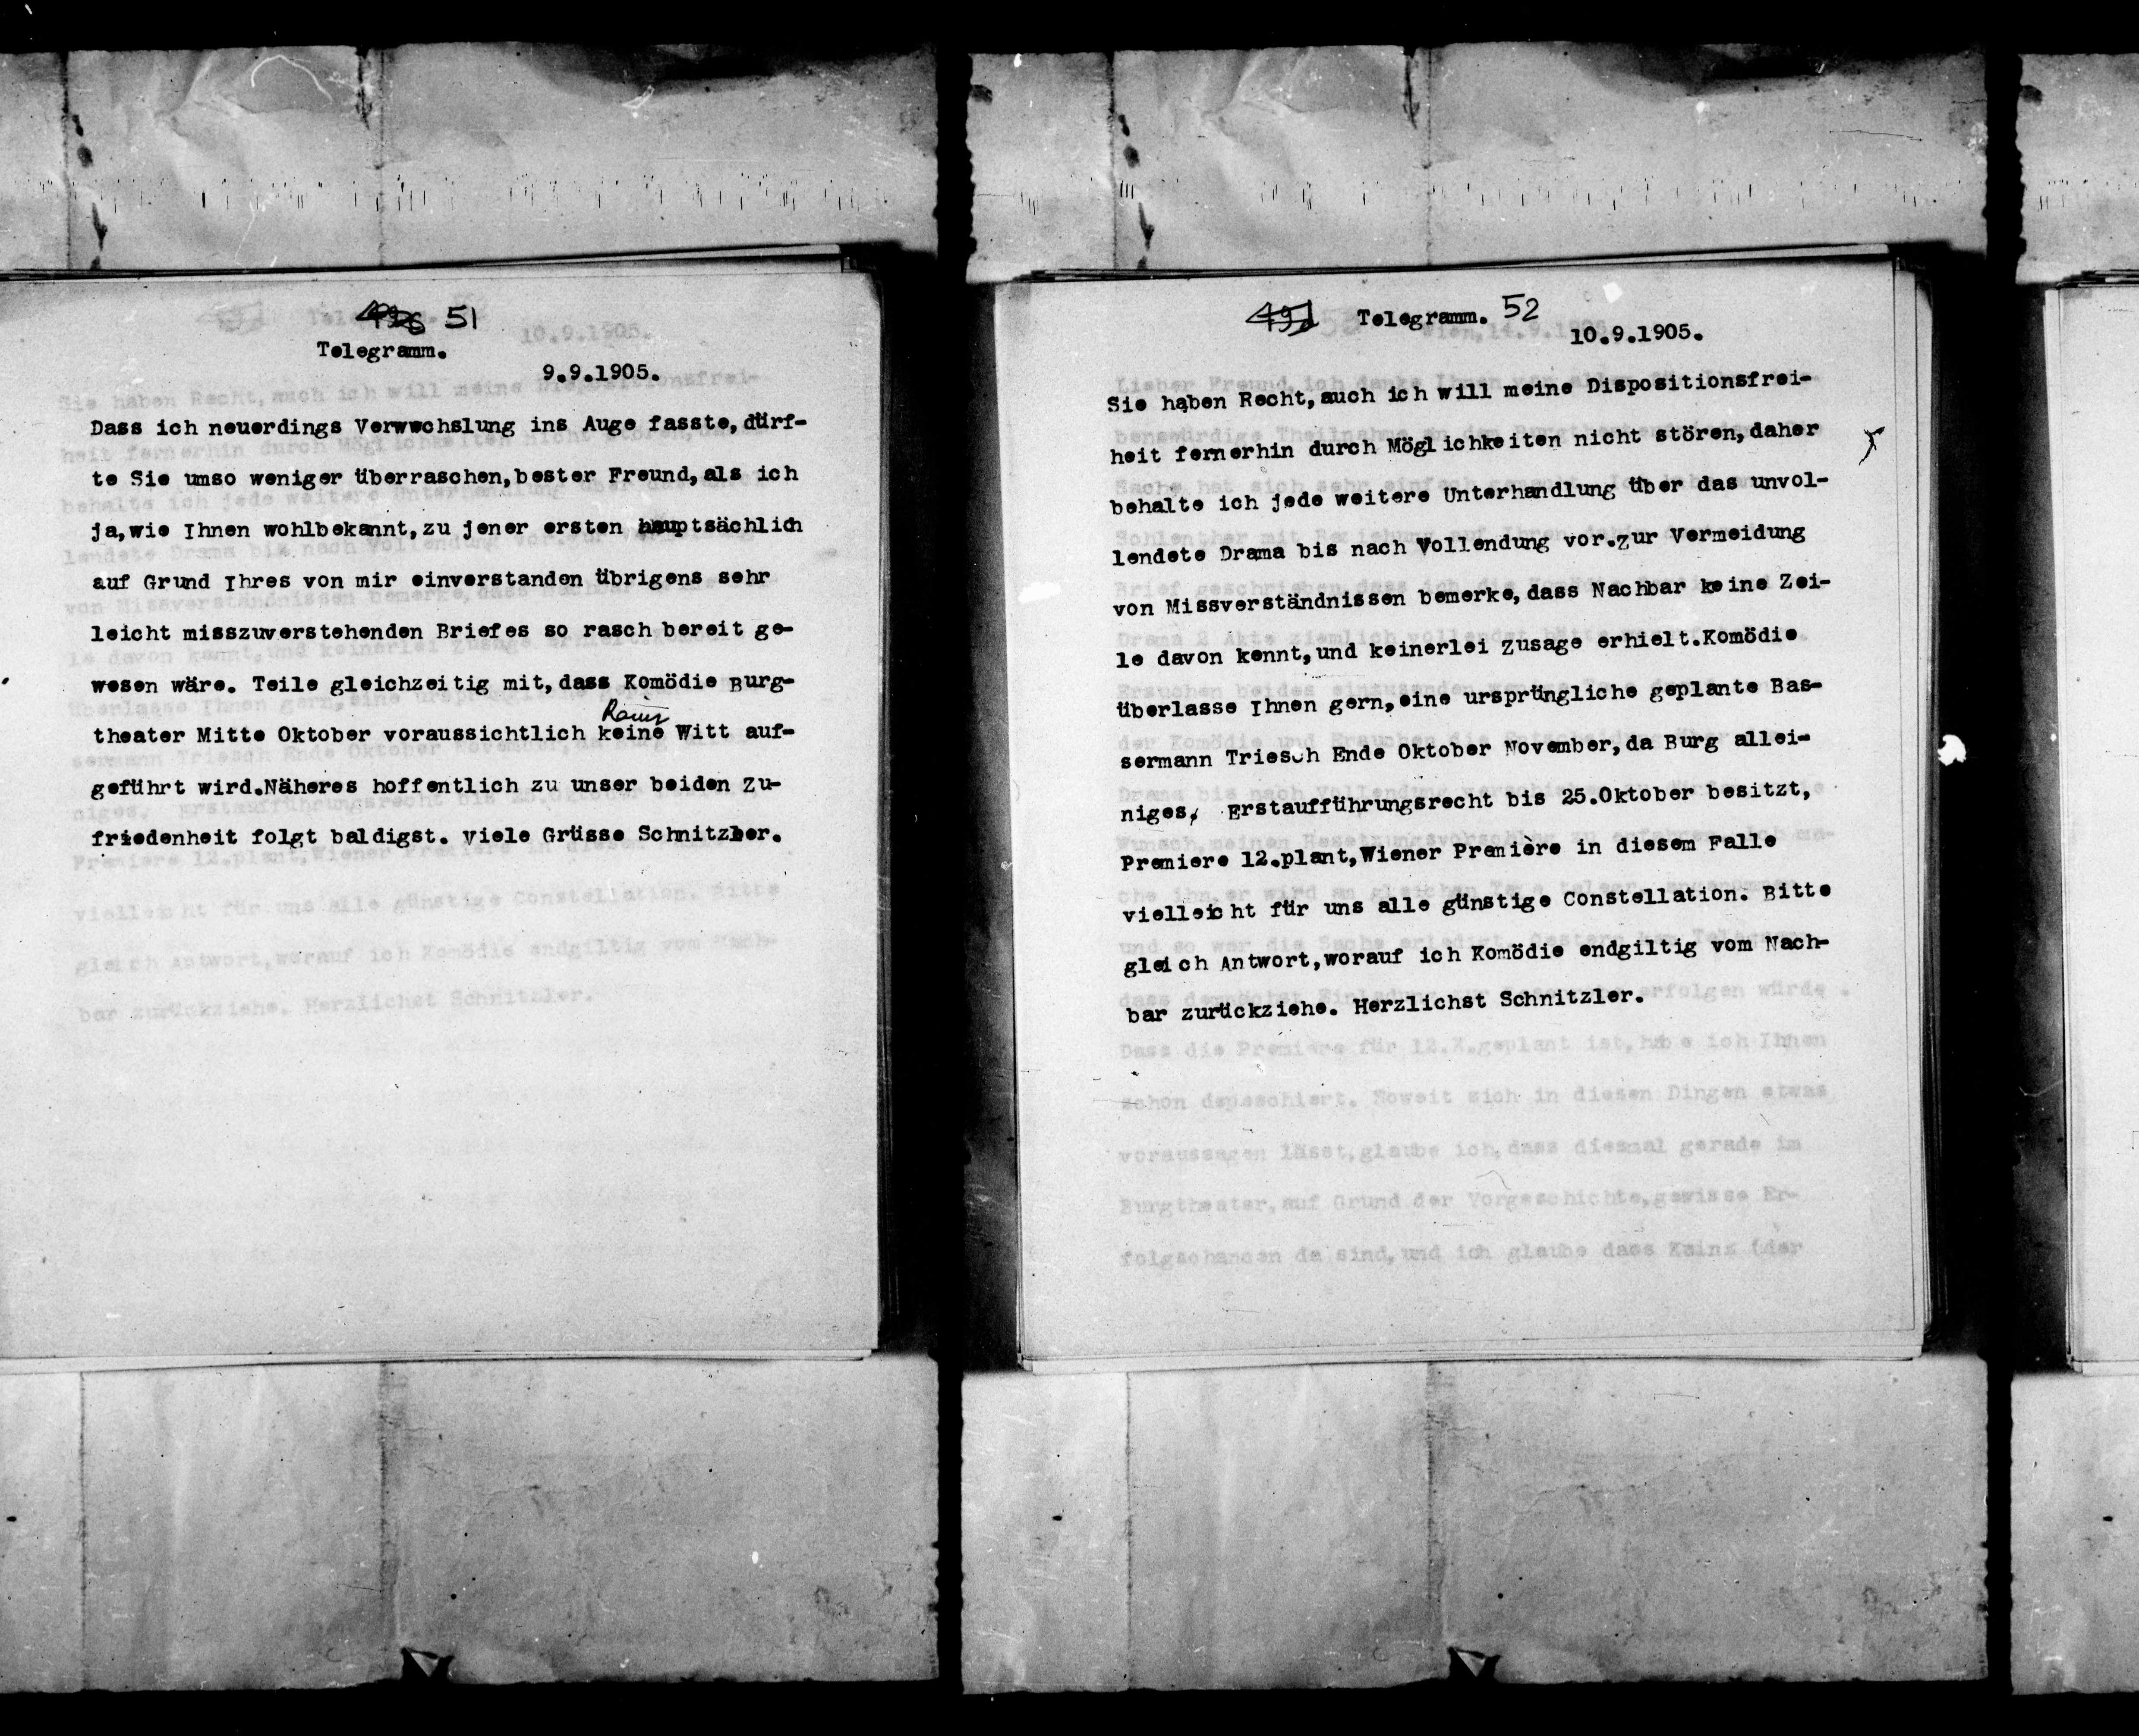 51
Telegramm.
9.9.1905.
Dass ich neuerdings Verwwchslung ins Auge fasste, dürf-
te Sie umso weniger überraschen, bester Freund, als ich
ja, wie Ihnen wohlbekannt, zu jener ersten hauptsächlich
auf Grund Ihres von mir einverstanden übrigens sehr
leicht misszuverstehenden Briefes so rasch bereit ge-
wesen wäre. Teile gleichzeitig mit, dass Komödie Burg-
theater Mitte Oktober voraussichtlich keine Witt auf-
geführt wird.Näheres hoffentlich zu unser beiden Zu-
friedenheit folgt baldigst. Viele Grüsse Schnitzler.
Telegramm. 52
10.9.1905.
Sie haben Recht, auch ich will meine Dispositionsfrei-
heit fernerhin durch Möglichkeiten nicht stören, daher
behalte ich jede weitere Unterhandlung über das unvol-
lendete Drama bis nach Vollendung vor.zur Vermeidung
von Missverständnissen bemerke, dass Nachbar keine Zei-
le davon kennt, und keinerlei Zusage erhielt.Komödie
überlasse Ihnen gern, eine ursprüngliche geplante Bas-
sermann Triesch Ende Oktober November, da Burg allei-
niges, Erstaufführungsrecht bis 25.Oktober besitzt,
Premiere 12.plant, Wiener Première in diesem Falle
vielleicht für uns alle günstige Constellation. Bitte
gleich Antwort, worauf ich Komödie endgiltig vom Nach-
bar zurückziehe. Herzlichst Schnitzler.